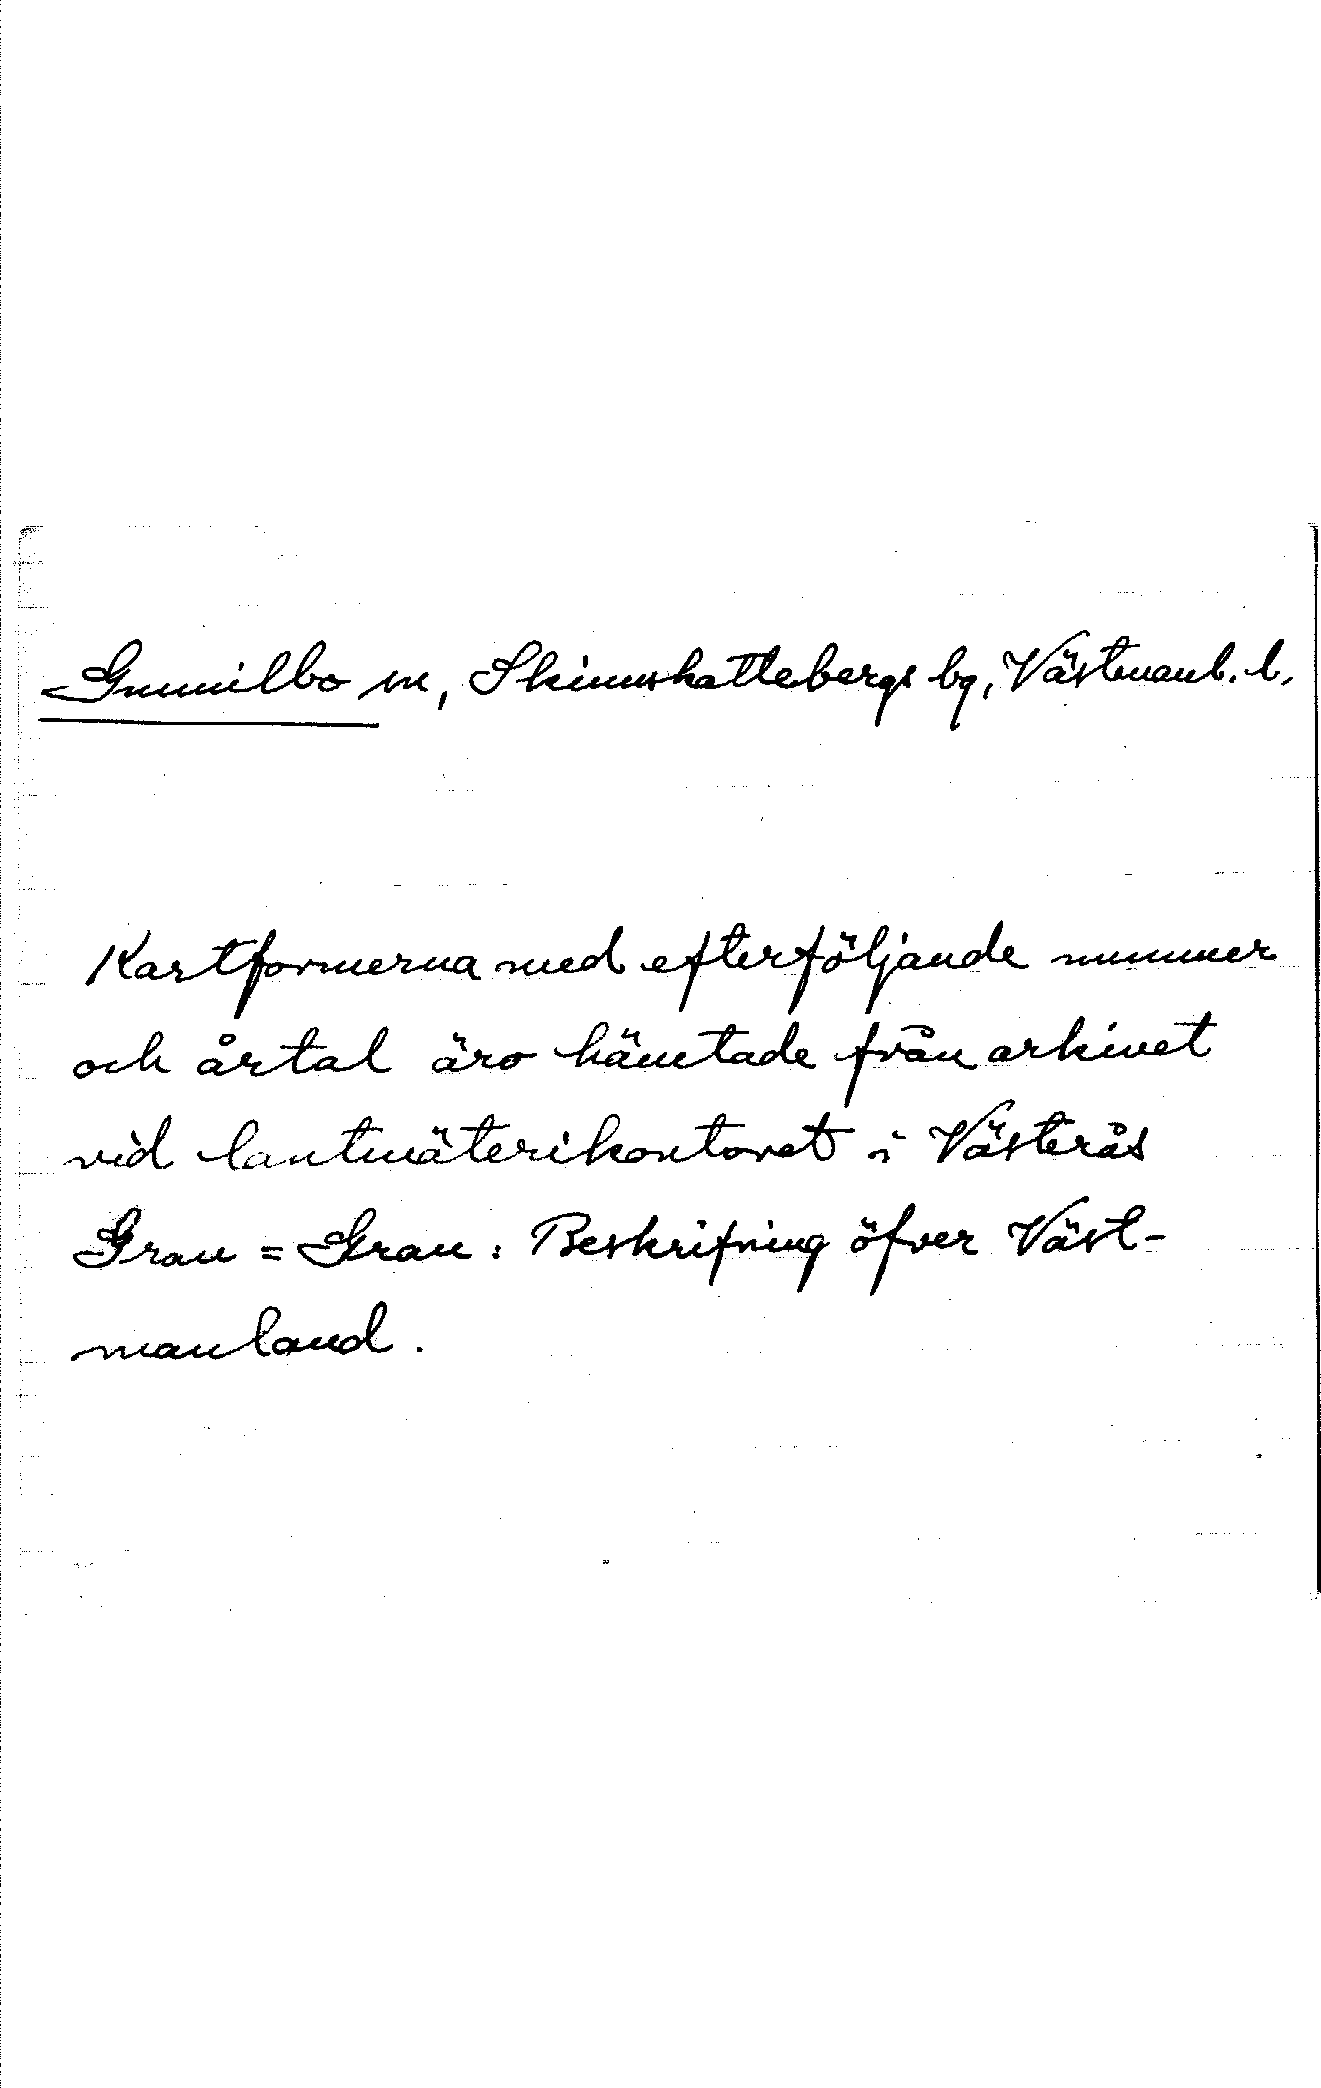 Gunnilbo sn, Skinnskattebergs bg, Västmanl. l.
Kartformerna med efterföljande nummer
och årtal äro hämtade från arkivet
vid lantmäterikontoret i Västerås
Grau = Grau: Beskrifning öfver Väst-
manland.